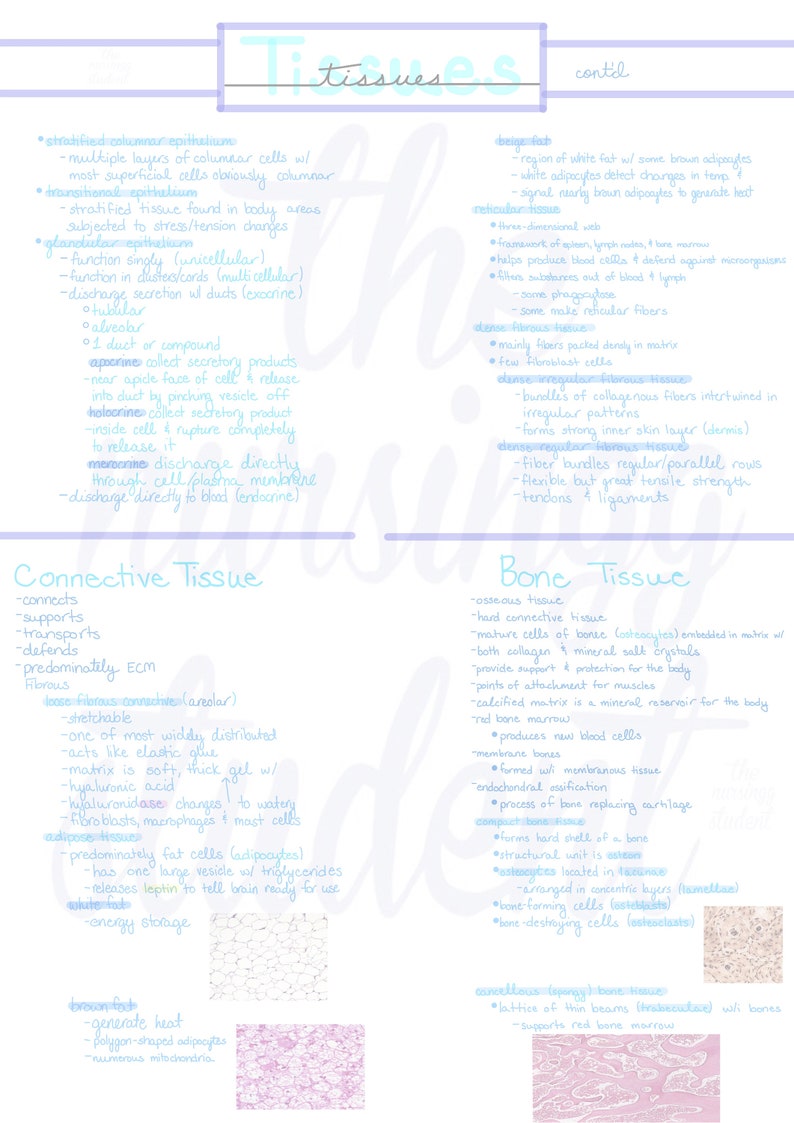 the nursingg student
Tissues
tissues
cont'd
• stratified columnar epithelium
- multiple layers of columnar cells w/
most superficial cells obviously columnar
• transitional epithelium
- stratified tissue found in body areas
subjected to stress/tension changes
• glandular epithelium
- function singly (unicellular)
- function in clusters/cords (multicellular)
- discharge secretion w/ ducts (exocrine)
° tubular
° alveolar
° 1 duct or compound
apocrine collect secretory products
- near apicle face of cell & release
into duct by pinching vesicle off
holocrine collect secretory product
- inside cell & rupture completely
to release it
merocrine discharge directly
through cell/plasma membrane
- discharge directly to blood (endocrine)
beige fat
- region of white fat w/ some brown adipocytes
- white adipocytes detect changes in temp. &
- signal nearly brown adipocytes to generate heat
reticular tissue
• three-dimensional web
• framework of spleen, lymph nodes, & bone marrow
• helps produce blood cells & defend against microorganisms
• filters substances out of blood & lymph
- some phagocytose
- some make reticular fibers
dense fibrous tissue
• mainly fibers packed densly in matrix
• few fibroblast cells
dense irregular fibrous tissue
- bundles of collagenous fibers intertwined in
irregular patterns
- forms strong inner skin layer (dermis)
dense regular fibrous tissue
- fiber bundles regular/parallel rows
- flexible but great tensile strength
- tendons & ligaments
Connective Tissue
- connects
- supports
- transports
- defends
- predominately ECM
Fibrous
loose fibrous connective (areolar)
- stretchable
- one of most widely distributed
- acts like elastic glue
- matrix is soft, thick gel w/
- hyaluronic acid ↑
- hyaluronidase changes to watery
- fibroblasts, macrophages & mast cells
adipose tissue
- predominately fat cells (adipocytes)
- has one large vesicle w/ triglycerides
- releases leptin to tell brain ready for use
white fat
- energy storage
brown fat
- generate heat
- polygon-shaped adipocytes
- numerous mitochondria
Bone Tissue
- osseous tissue
- hard connective tissue
- mature cells of bonee (osteocytes) embedded in matrix w/
- both collagen & mineral salt crystals
- provide support & protection for the body
- points of attachment for muscles
- calcified matrix is a mineral reservoir for the body
- red bone marrow
• produces new blood cells
- membrane bones
• formed w/i membranous tissue
- endochondral ossification
• process of bone replacing cartilage
compact bone tissue
• forms hard shell of a bone
• structural unit is osteon
• osteocytes located in lacunae
- arranged in concentric layers (lamellae)
• bone-forming cells (osteblasts)
• bone-destroying cells (osteoclasts)
cancellous (spongy) bone tissue
• lattice of thin beams (trabeculae) w/i bones
- supports red bone marrow
the nursingg student
the nursingg student